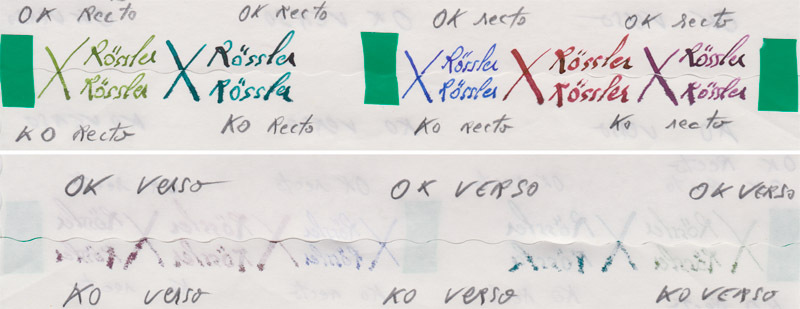 OK Recto OK Recto OK recto OK recto
X Rössler X Rössler X Rössler X Rössler X Rössler
Rössler Rössler Rössler Rössler Rössler
KO Recto KO Recto KO Recto KO recto
OK verso OK VERSO OK VERSO
KO verso KO VERSO KO VERSO